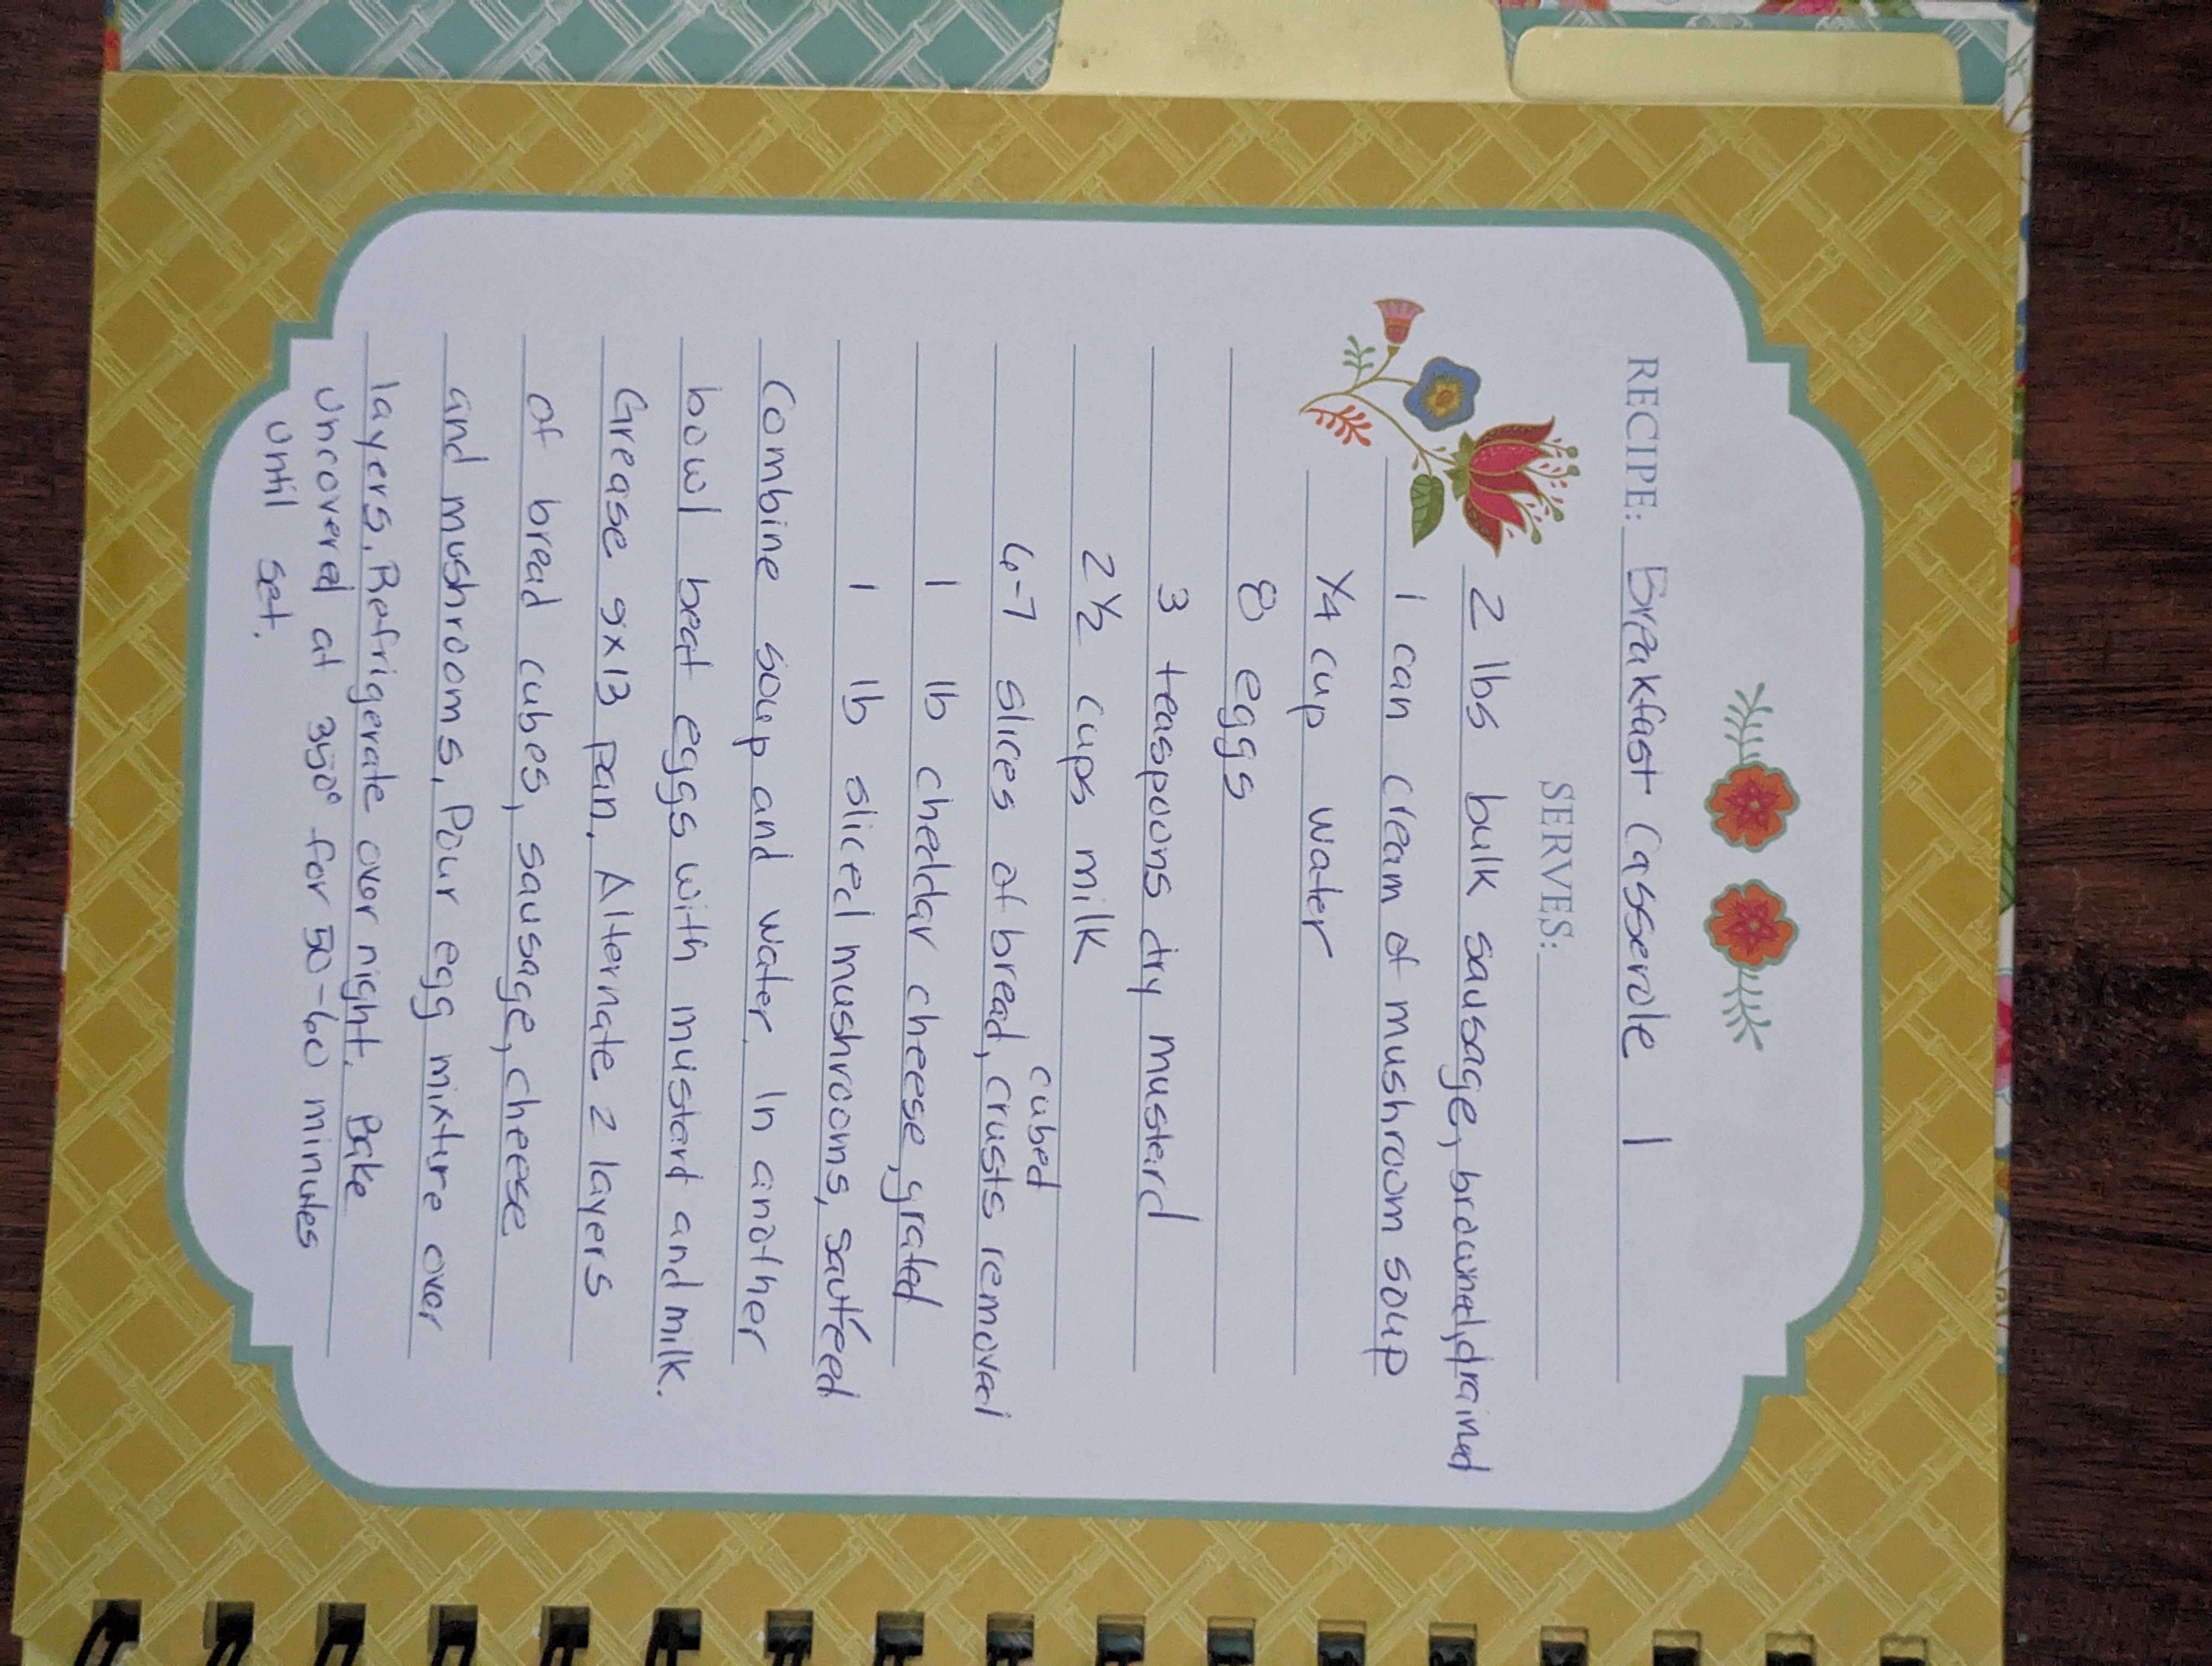 RECIPE: Breakfast Casserole 1
SERVES:
2 lbs bulk sausage, browned, draind
1 can cream of mushroom soup
1/4 cup water
8 eggs
3 teaspoons dry mustard
2 1/2 cups milk
cubed
6-7 slices of bread, crusts removed
1 lb cheddar cheese, grated
1 lb sliced mushrooms, sautéed
Combine soup and water. In another
bowl beat eggs with mustard and milk.
Grease 9x13 pan. Alternate 2 layers
of bread cubes, sausage, cheese
and mushrooms. Pour egg mixture over
layers. Refrigerate over night. Bake
uncovered at 350° for 50-60 minutes
until set.